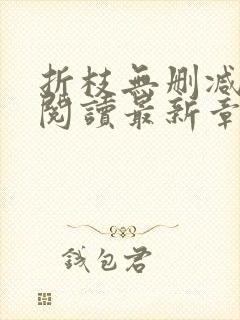 折枝無刪减
閱讀最新章
錢包君